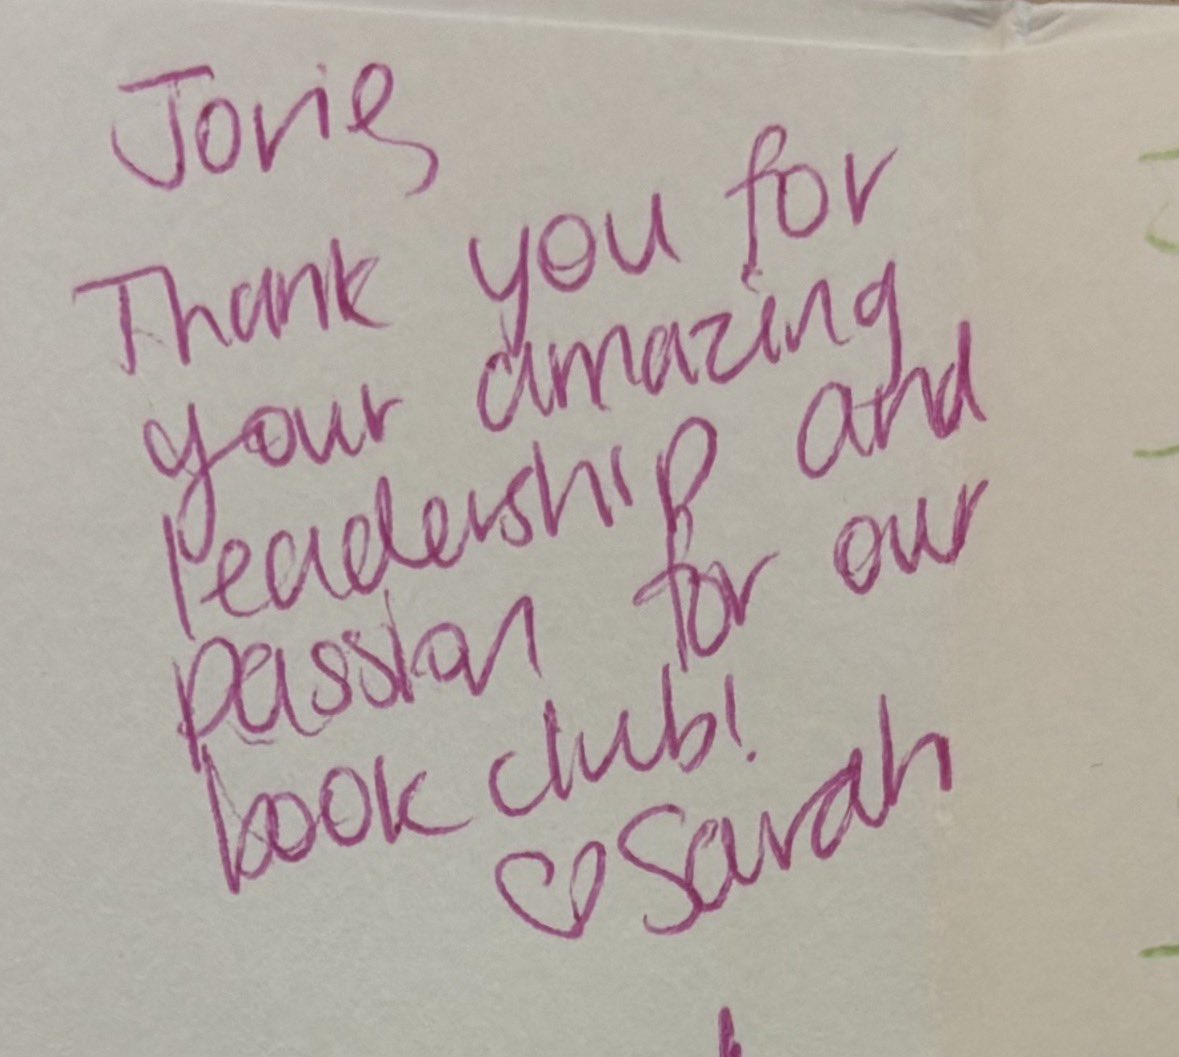 Jorie,
Thank you for
your amazing
leadership and
passion for our
book club!
♡Sarah